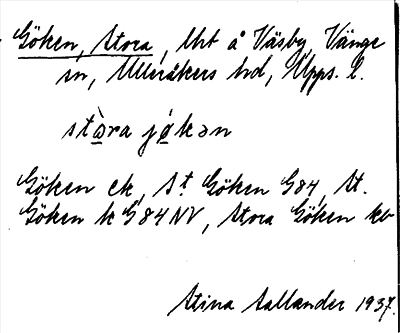 Göken, Stora, lht å Väsby, Vänge
sn, Ulleråkers hd, Upps. l.
stò̱ra jǿ̱kən
Göken ek, St Göken G84, St.
Göken k G84NV, Stora Göken kb
Stina Sallander 1937.